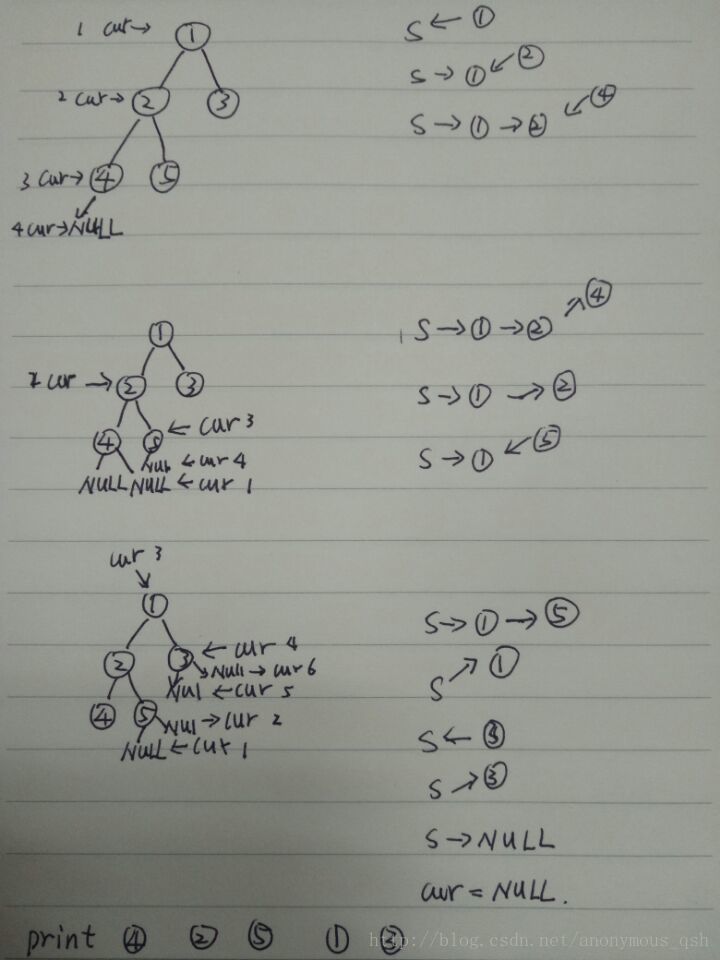 1 cur→ ① S ← ①
S → ① ↙ ②
2 cur→ ② ③
S → ① → ② ↙ ④
3 cur→ ④ ⑤
4 cur→NULL
S → ① → ② ↗ ④
①
2 cur → ② ③
S → ① → ②
④ ⑤ ← cur 3
S → ① ↙ ⑤
NUL ← cur 4
NULL NULL ← cur 1
cur 3
①
S → ① → ⑤
② ③ ← cur 4
NULL → cur 6
S ↗ ①
NUL ← cur 5
④ ⑤ NUL → cur 2
S ← ③
NULL ← cur 1
S ↗ ③
S → NULL
cur = NULL.
print ④ ② ⑤ ① ③
http://blog.csdn.net/anonymous_qsh